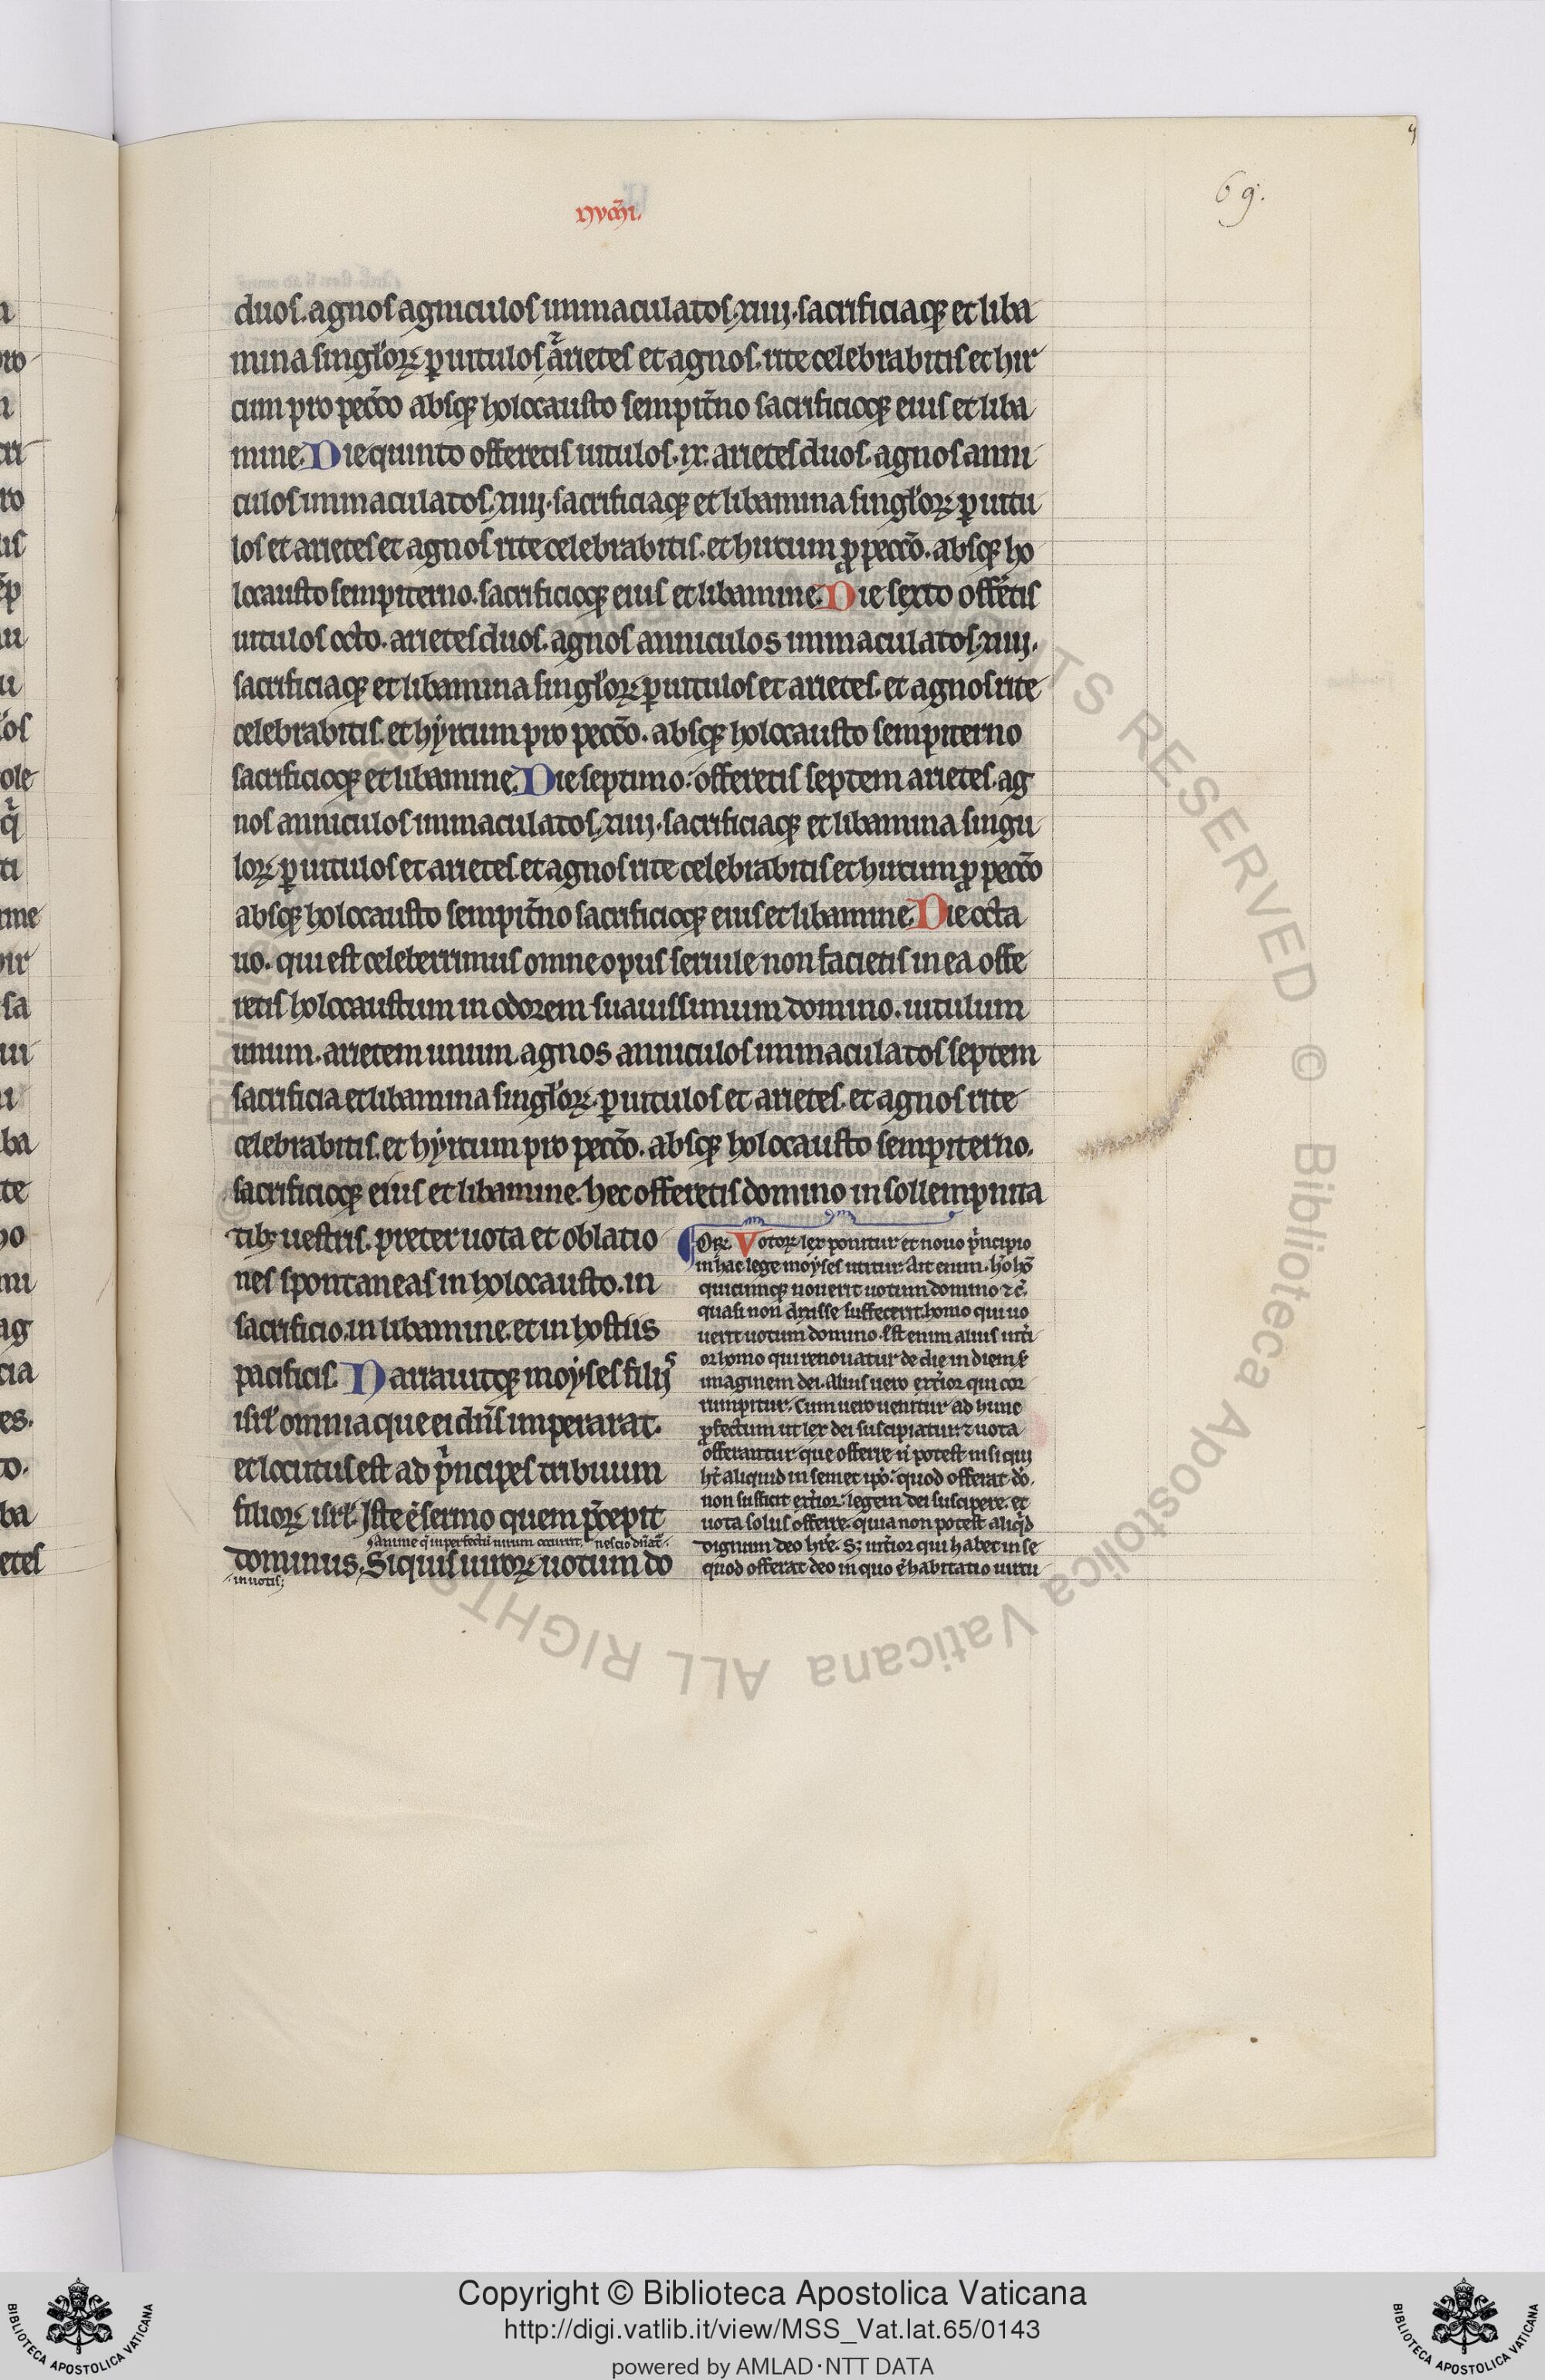 69.
NVMERI.
duos. agnos agniculos inmaculatos. xiiij. sacrificiaq; et liba
mina singl'oꝝ ꝑ uitulos ⁊ arietes et agnos. rite celebrabitis et hir
cum pro pecc̄o absq; holocausto sempit̄no sacrificioq; eius et liba
mine. Die quinto offeretis uitulos. ix. arietes duos. agnos anni
culos inmaculatos. xiiij. sacrificiaq; et libamina singl'oꝝ ꝑ uitu
los et arietes et agnos rite celebrabitis. et hircum ꝓ pecc̄o. absq; ho
locausto sempiterno. sacrificioq; eius et libamine. Die sexto offer̄tis
uitulos octo. arietes duos. agnos anniculos inmaculatos. xiiij.
sacrificiaq; et libamina singl'oꝝ ꝑ uitulos et arietes. et agnos rite
celebrabitis. et hẏrcum pro pecc̄o. absq; holocausto sempiterno
sacrificioq; et libamine. Die septimo. offeretis septem arietes. ag
nos anniculos inmaculatos. xiiij. sacrificiaq; et libamina singu
loꝝ ꝑ uitulos et arietes. et agnos rite celebrabitis et hircum ꝓ pecc̄o
absq; holocausto sempit̄no sacrificioq; eius et libamine. Die octa
uo. qui est celeberrimus omne opus seruile non facietis in ea offe
retis holocaustum in odorem suauissimum domino. uitulum
unum. arietem unum. agnos anniculos inmaculatos septem
sacrificia et libamina singl'oꝝ. ꝑ uitulos et arietes. et agnos rite
celebrabitis. et hẏrcum pro pecc̄o. absq; holocausto sempiterno.
sacrificioq; eius et libamine. hec offeretis domino in sollempnita
tib; uestris. preter uota et oblatio
nes spontaneas in holocausto. in
sacrificio. in libamine. et in hostiis
pacificis. Narrauitq; moẏses filijs
isrl' omnia que ei dn̄s imperarat.
et locutus est ad p'ncipes tribuum
filioꝝ isrl'. Iste ē sermo quem p̄cepit
dominus. Si quis uiroꝝ uotum do
in uotis;
OR̄. Votoꝝ lex ponitur et nouo p'ncipio
in hac lege moẏses utitur. Ait enim. ho ho
quicumq; uouerit uotum domino ⁊ c̄.
quasi non dixisse suffecerit. homo qui uo
uerit uotum domino. Est enim alius int̄i
or homo qui renouatur de die in diem s'
imaginem dei. Alius uero ext̄ior qui cor
rumpitur. Cum uero uenitur ad hunc
ꝓfectum ut lex dei suscipiatur ⁊ uota
offerantur que offerre n̄ potest nisi qui
ht̄ aliquid in semet ip̄o. quod offerat d̄o.
non sufficit ext̄ior. legem dei suscipere. et
uota solus offerre. quia non potest aliq'd
dignum deo hr̄e. S; int̄ior qui habet in se
quod offerat deo in quo ē habitatio uirtu
© Biblioteca Apostolica Vaticana ALL RIGHTS RESERVED
Copyright © Biblioteca Apostolica Vaticana
http://digi.vatlib.it/view/MSS_Vat.lat.65/0143
powered by AMLAD·NTT DATA
BIBLIOTECA APOSTOLICA VATICANA
BIBLIOTECA APOSTOLICA VATICANA